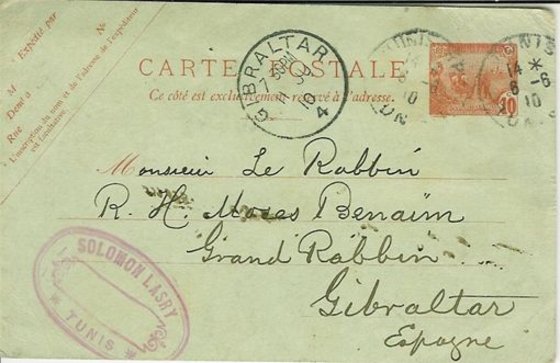 Expédié par
M
Dem.t à
Rue
N.o
L'inscription du nom et de l'adresse de l'expéditeur
est facultative.
CARTE POSTALE
Ce côté est exclusivement réservé à l'adresse.
GIBRALTAR
10
TUNIS
14
6-6
10
10
Monsieur Le Rabbin
R. H. Moses Benaïm
Grand Rabbin
Gibraltar
Espagne
SOLOMON LASRY
* TUNIS *